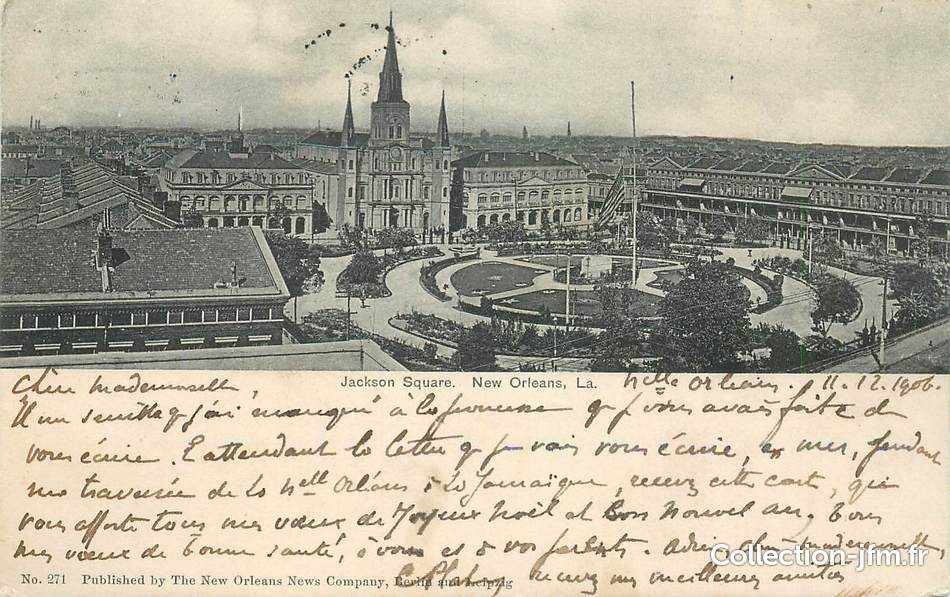 Jackson Square. New Orleans, La.
Nelle Orléans. 11.12.1906.
Chère Mademoiselle,
Il me semble que j'ai manqué à la promesse que je vous avais faite de
vous écrire. En attendant la lettre que je vais vous écrire, en mer, pendant
ma traversée de la Nelle Orléans à la Jamaïque, recevez cette carte, qui
vous apporte tous mes vœux de Joyeux Noël et Bon Nouvel an. Tous
mes vœux de bonne santé, à vous et à vos parents. Adieu chère mademoiselle,
recevez mes meilleures amitiés
No. 271 Published by The New Orleans News Company, Berlin and Leipzig
Collection-jfm.fr